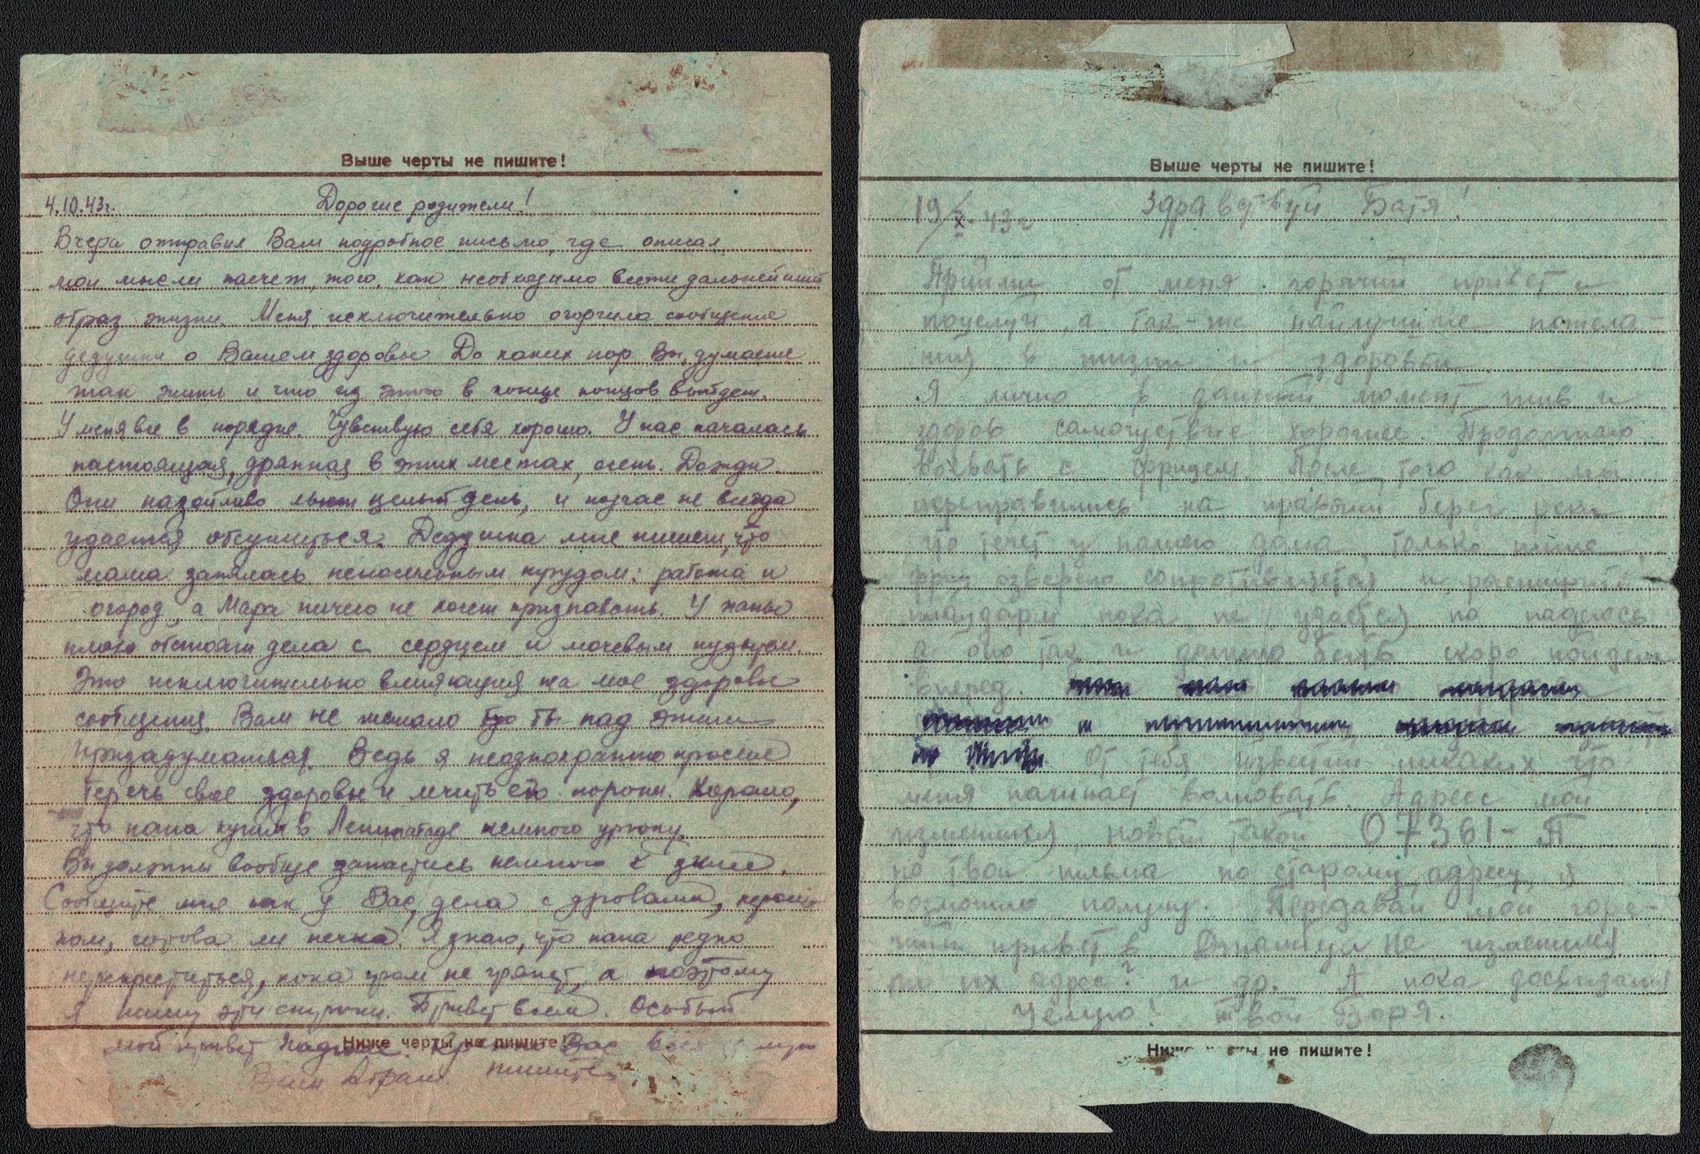 Выше черты не пишите!
4.10.43г. Дорогие родители!
Вчера отправил Вам подробное письмо, где описал
мои мысли насчет того, как необходимо вести дальнейший
образ жизни. Меня исключительно огорчило сообщение
дедушки о Вашем здоровье. До каких пор Вы думаете
так жить и что из этого в конце концов выйдет.
У меня все в порядке. Чувствую себя хорошо. У нас началась
настоящая, в этих местах, осень. Дожди.
Они назойливо льют целый день, и подчас не всегда
удается обсушиться. Дедушка мне пишет, что
мама занялась непосильным трудом: работа и
огород, а Мара ничего не хочет признавать. У папы
плохо обстоят дела с сердцем и мочевым пузырем.
Это исключительно влияющия на мое здоровье
сообщения. Вам не мешало бы над этим
призадуматься. Ведь я неоднократно просил
беречь свое здоровье и лечить его пороки. Хорошо,
что папа купил в немного
Вы должны вообще запастись немного к зиме.
Сообщите мне как у Вас дела с дровами, кероси-
ном, готова ли печка. Я знаю, что папа редко
перекреститься, пока гром не грянет, а поэтому
я пишу эти строки. Привет всем. Особый
мой привет Вас всех
Ниже черты не пишите!
Ваш Абрам. пишите
Выше черты не пишите!
19/X-43г Здравствуй Батя!
Прийми от меня горячий привет и
поцелуй, а так-же наилучшие пожела-
ния в жизни и здоровьи.
Я лично в данный момент жив и
здоров самочуствие хорошее. Продолжаю
воевать с фрицем. После того как мы
переправились на правый берег реки
что течет у нашего дома, только ниже,
фриц озверело сопротивляется и расширить
плацдарм пока не удается) но надеюсь
а оно так и должно быть скоро пойдем
вперед.
и
От тебя известий никаких что
меня начинает волновать. Адресс мой
изменился, новый такой 07361-П
но твои письма по старому адресу я
возможно получу. Передавай мой горя-
чий привет в не изменился
ли их адрес? и др. А пока досвидания
Целую! твой Боря.
Ниже черты не пишите!